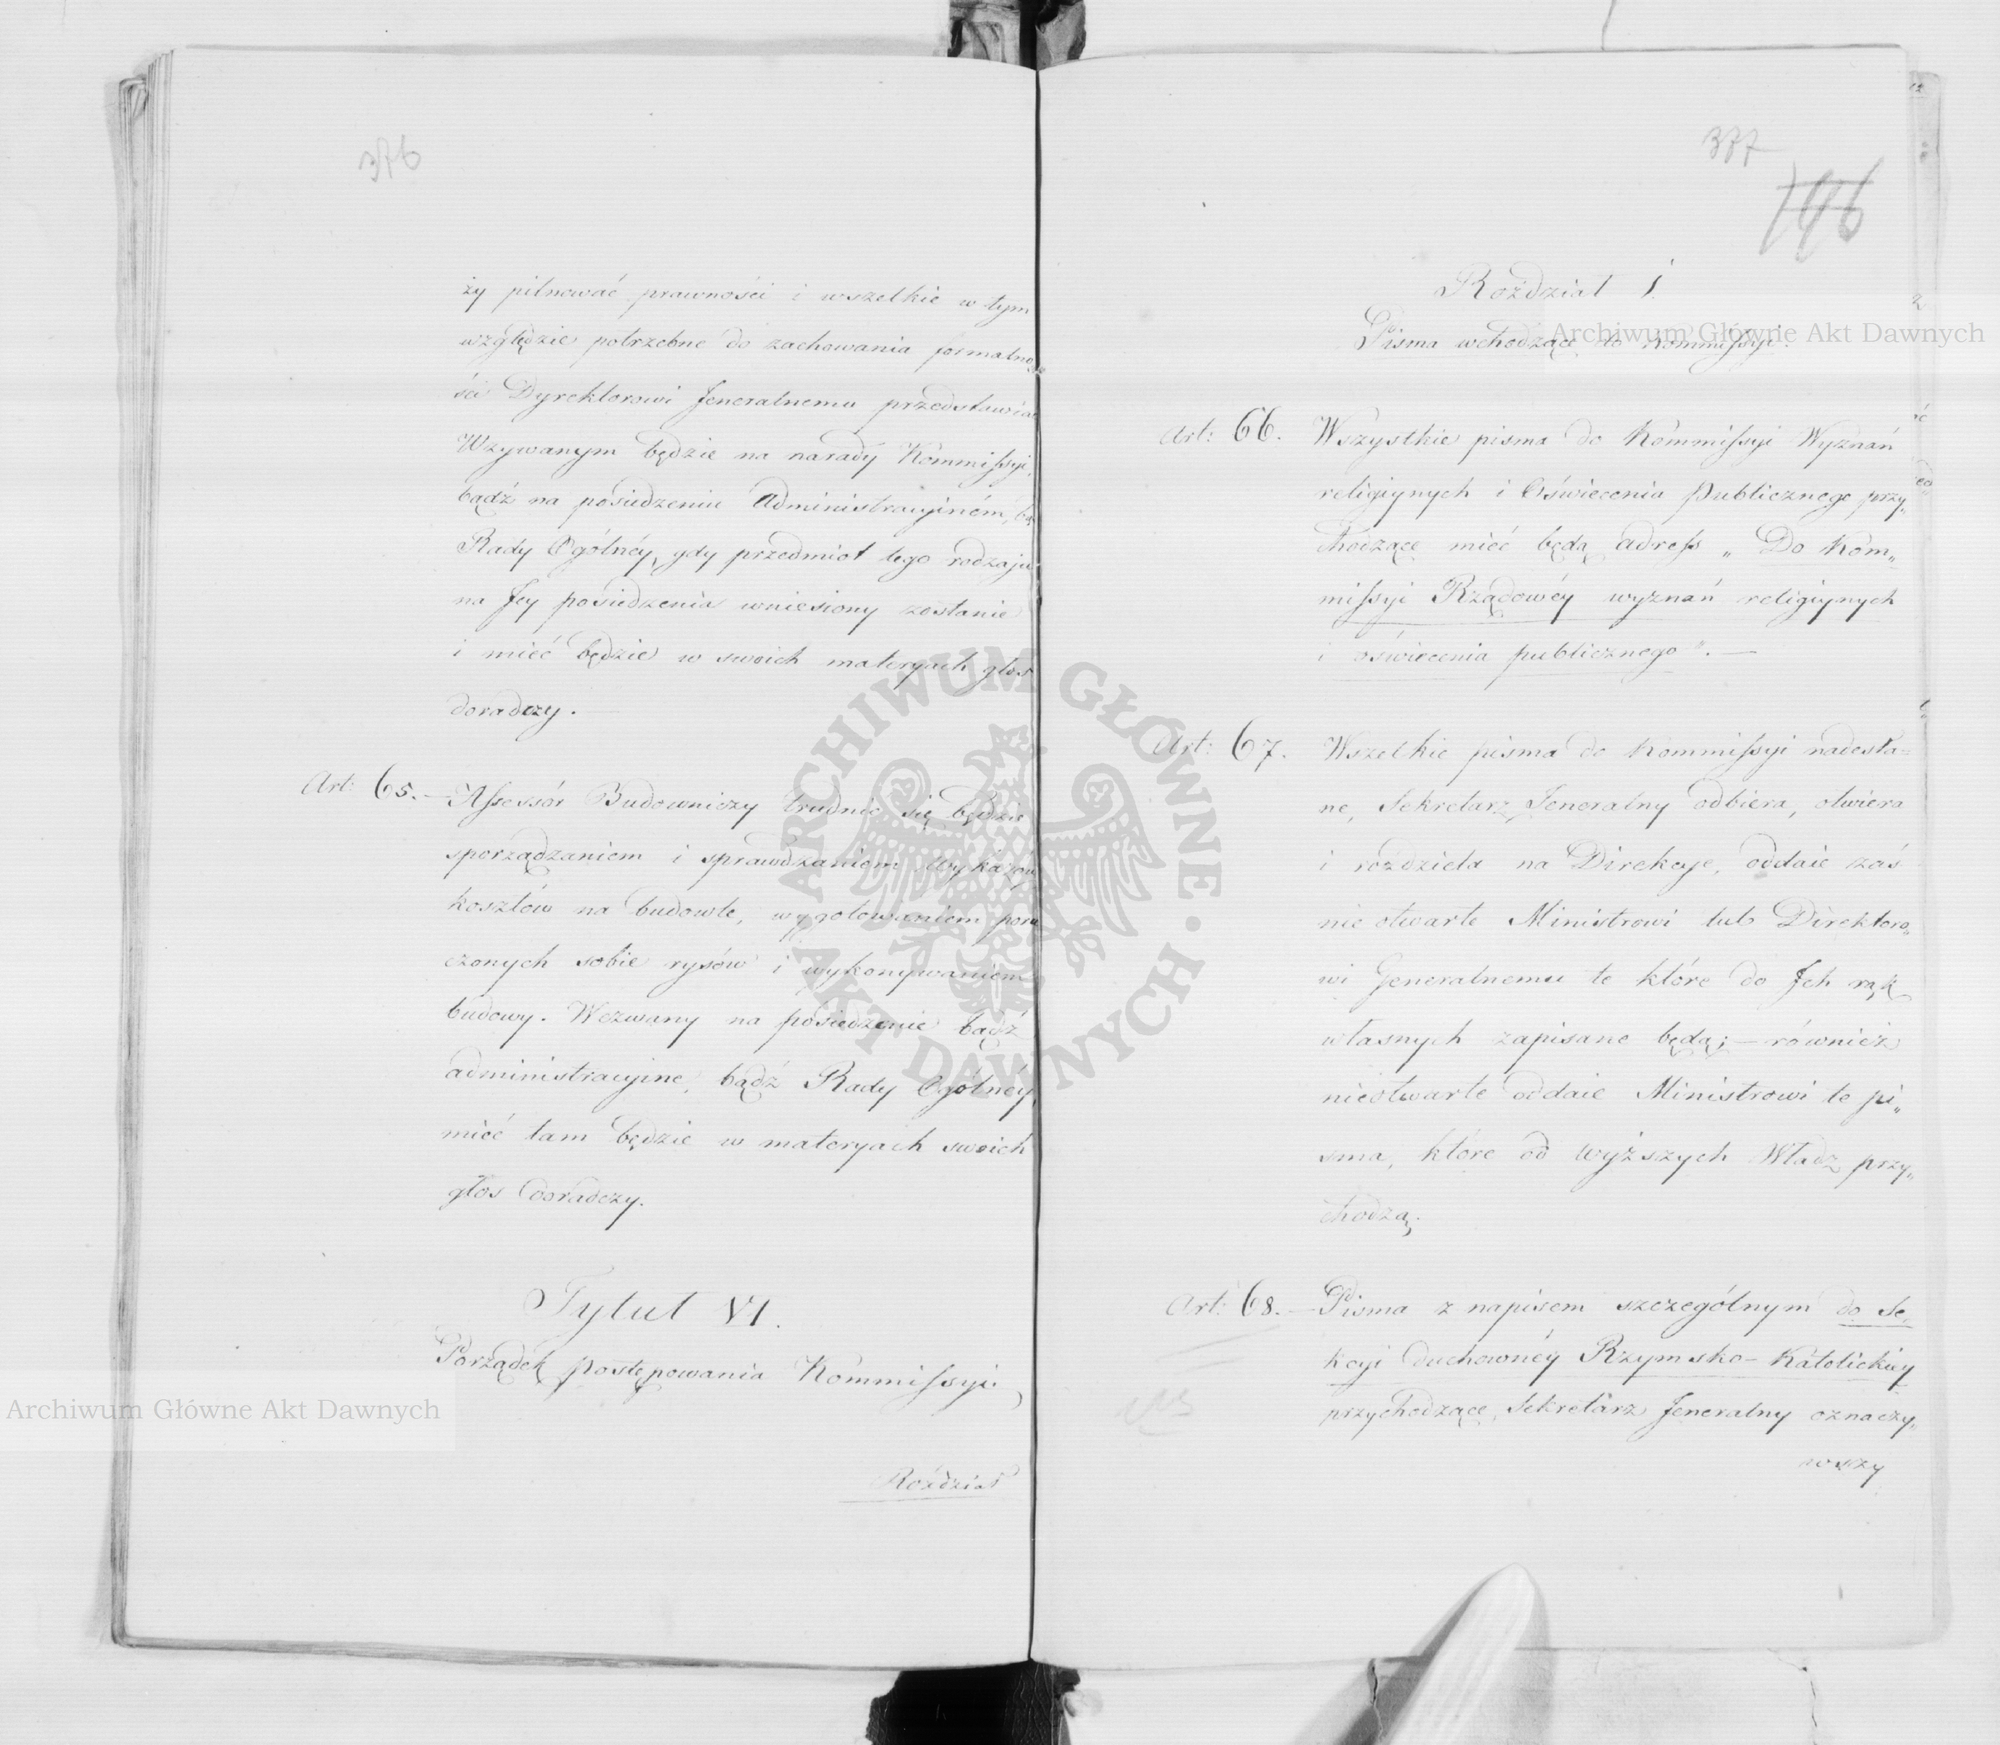 376
ży pilnować prawności i wszelkie w tym
względzie potrzebne do zachowania formalno
ści Dyrektorowi Jeneralnemu przedstawiać
Wzywanym będzie na narady Kommissyi,
bądź na posiedzenie Administracyiném, bą
Rady Ogólnéy, gdy przedmiot tego rodzaju
na Jey posiedzenia wniesiony zostanie
i mieć będzie w swoich materyach głos
doradczy.
Art: 65. — Assessór Budowniczy trudnić się będzie
sporządzaniem i sprawdzaniem wykazów
kosztów na budowle, wygotowaniem poru
czonych sobie rysów i wykonywaniem
budowy. Wezwany na posiedzenie bądź
administracyine, bądź Rady Ogólnéy,
mieć tam będzie w materyach swoich
głos doradczy.
Tytuł VI.
Porządek postępowania Kommissyi
Rozdział
377
146
Rozdział I.
Pisma wchodzące do Kommissyi.
Art: 66. Wszystkie pisma do Kommissyi Wyznań
religiynych i Oświecenia Publicznego przy„
chodzące mieć będą adress „Do Kom„
missyi Rządowéy wyznań religiynych
i oświecenia publicznego”. —
Art: 67. Wszelkie pisma do Kommissyi nadesła=
ne, Sekretarz Jeneralny odbiera, otwiera
i rozdziela na Direkcye, oddaie zaś
nie otwarte Ministrowi lub Direktoro„
wi Generalnemu te które do Jch rąk
własnych zapisane będą; — również
nieotwarte oddaie Ministrowi te pi„
sma, które od wyższych Władz przy„
chodzą.
Art: 68. — Pisma z napisem szczególnym do Se„
kcyi duchownéy Rzymsko-Katolickiey
przychodzące, Sekretarz Jeneralny oznaczy„
wszy
Archiwum Główne Akt Dawnych
Archiwum Główne Akt Dawnych
ARCHIWUM GŁÓWNE · AKT DAWNYCH ·